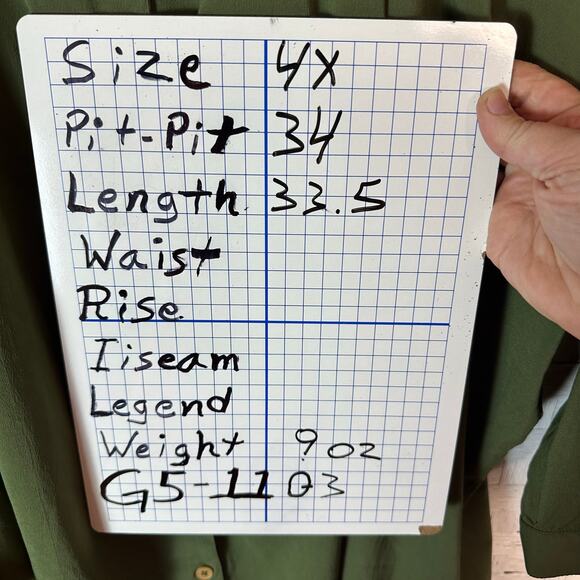 Size 4X
Pit-Pit 34
Length 33.5
Waist
Rise
Iiseam
Legend
Weight 9 oz
G5-1103